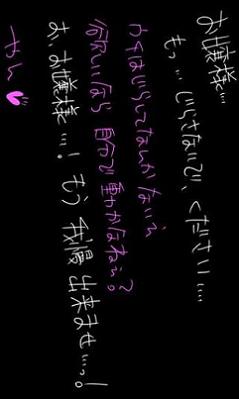 お嬢様…
もっ…じらさないで、ください…
ウチはじらしてなんかないえ
欲しいなら自分で動かなねぇ?
お、お嬢様…!もう我慢出来ませ…っ!
やん